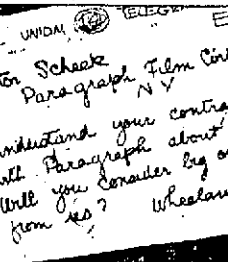 UNION TELEG
tor Scheck
Paragraph Film Cor
N Y
understand your contra
with Paragraph about
Will you consider big o
from us? Wheelan